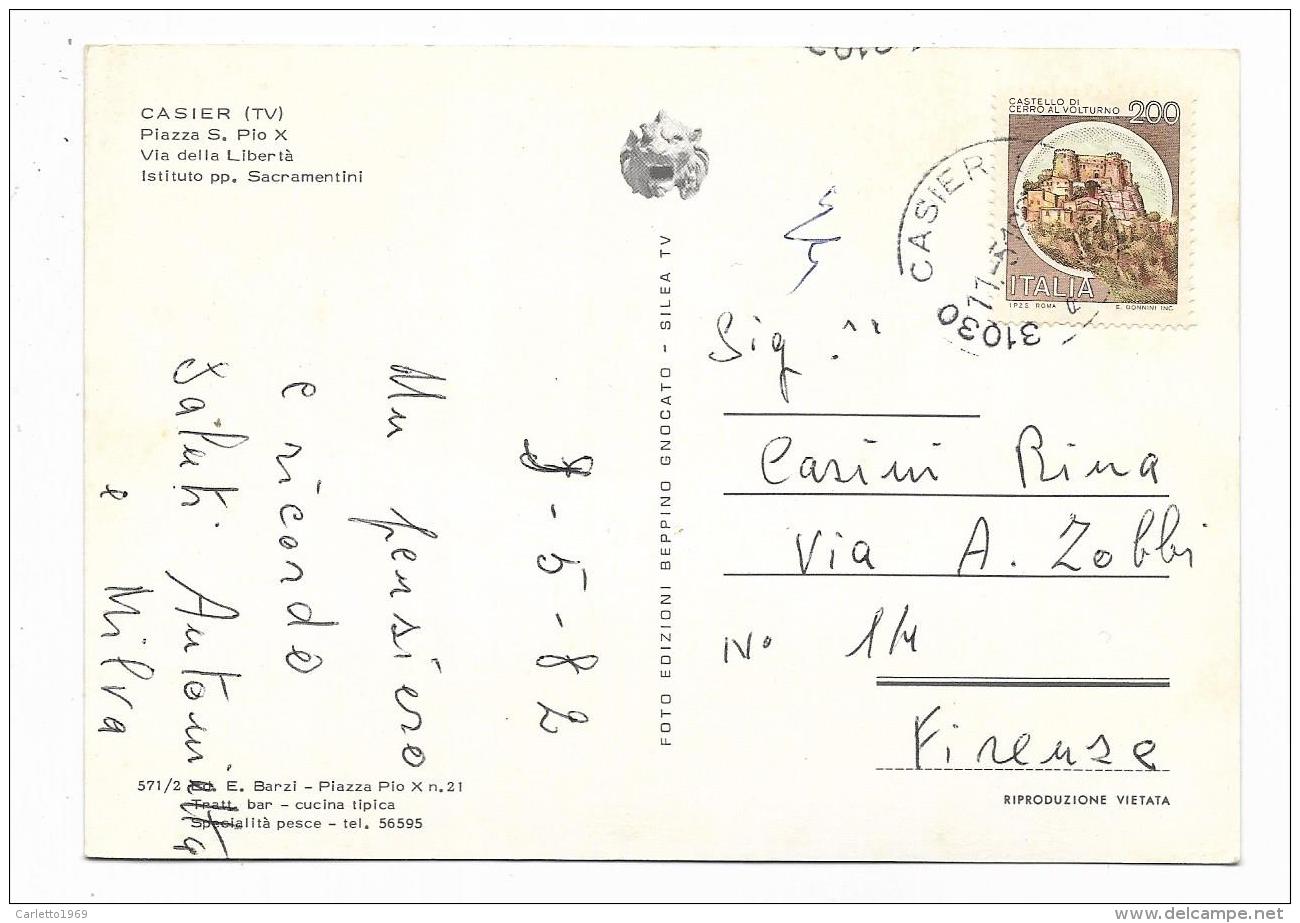 CASIER (TV)
Piazza S. Pio X
Via della Libertà
Istituto pp. Sacramentini
CASTELLO DI
CERRO AL VOLTURNO 200
ITALIA
I.P.Z.S. ROMA E. DONNINI INC.
CASIER
31030
9-5-82
Un pensiero
e ricordo
Saluti Antonietta
e Milva
FOTO EDIZIONI BEPPINO GNOCATO - SILEA TV
Sig.
Casini Rina
Via A. Zobbi
N° 14
Firenze
571/2 Ed. E. Barzi - Piazza Pio X n.21
Tratt. bar - cucina tipica
Specialità pesce - tel. 56595
RIPRODUZIONE VIETATA
Carletto1969
©delcampe.net